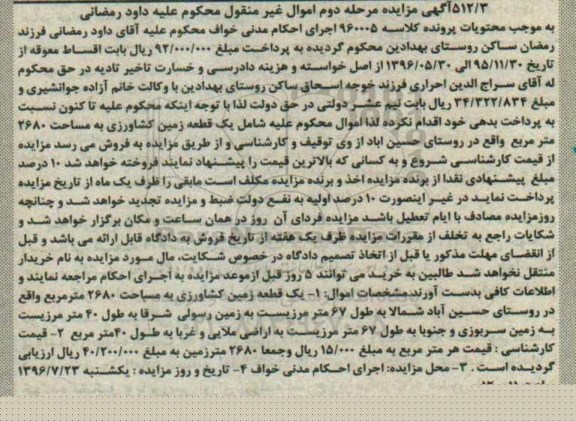 ۵۱۲/۳آگهی مزایده مرحله دوم اموال غیر منقول محکوم علیه داود رمضانی
به موجب محتویات پرونده کلاسه ۹۶۰۰۰۵ اجرای احکام مدنی خواف محکوم علیه آقای داود رمضانی فرزند
رمضان ساکن روستای بهدادین محکوم گردیده به پرداخت مبلغ ۹۲/۰۰۰/۰۰۰ ریال بابت اقساط معوقه از
تاریخ ۹۵/۱۱/۳۰ الی ۱۳۹۶/۰۵/۳۰ از اصل خواسته و هزینه دادرسی و خسارت تاخیر تادیه در حق محکوم
له آقای سراج الدین احراری فرزند خوجه سحاق ساکن روستای بهدادین با وکالت خانم آزاده جوانشیری و
مبلغ ۳۴/۳۲۲/۸۳۴ ریال بابت نیم عشر دولتی در حق دولت لذا با توجه اینکه محکوم علیه تا کنون نسبت
به پرداخت بدهی خود اقدام نکرده لذا اموال محکوم علیه شامل یک قطعه زمین کشاورزی به مساحت ۲۶۸۰
متر مربع واقع در روستای حسین اباد از وی توقیف و کارشناسی و از طریق مزایده به فروش می رسد مزایده
از قیمت کارشناسی شروع و به کسانی که بالاترین قیمت را پیشنهاد نمایند فروخته خواهد شد ۱۰ درصد
مبلغ پیشنهادی نقدا از برنده مزایده اخذ و برنده مزایده مکلف است مابقی را ظرف یک ماه از تاریخ مزایده
پرداخت نماید در غیر اینصورت ۱۰ درصد اولیه به نفع دولت ضبط و مزایده تجدید خواهد شد و چنانچه
روزمزایده مصادف با ایام تعطیل باشد مزایده فردای آن روز در همان ساعت و مکان برگزار خواهد شد و
شکایات راجع به تخلف از مقررات مزایده ظرف یک هفته از تاریخ فروش به دادگاه قابل ارائه می باشد و قبل
از انقضای مهلت مذکور یا قبل از اتخاذ تصمیم دادگاه در خصوص شکایت، مال مورد مزایده به نام خریدار
منتقل نخواهد شد طالبین به خرید می توانند ۵ روز قبل ازموعد مزایده به اجرای احکام مراجعه نمایند و
اطلاعات کافی بدست آورند.مشخصات اموال: ۱- یک قطعه زمین کشاورزی به مساحت ۲۶۸۰ مترمربع واقع
در روستای حسین آباد شمالا به طول ۶۷ متر مرزیست به زمین رسولی شرقا به طول ۴۰ متر مرزیست
به زمین سربوزی و جنوبا به طول ۶۷ متر مرزیست به اراضی ملایی و غربا به طول ۴۰متر مربع ۲- قیمت
کارشناسی : قیمت هر متر مربع به مبلغ ۱۵/۰۰۰ ریال وجمعا ۲۶۸۰ مترزمین به مبلغ ۴۰/۲۰۰/۰۰۰ ریال ارزیابی
گردیده است . ۳- محل مزایده: اجرای احکام مدنی خواف ۴- تاریخ و روز مزایده : یکشنبه ۱۳۹۶/۷/۲۳